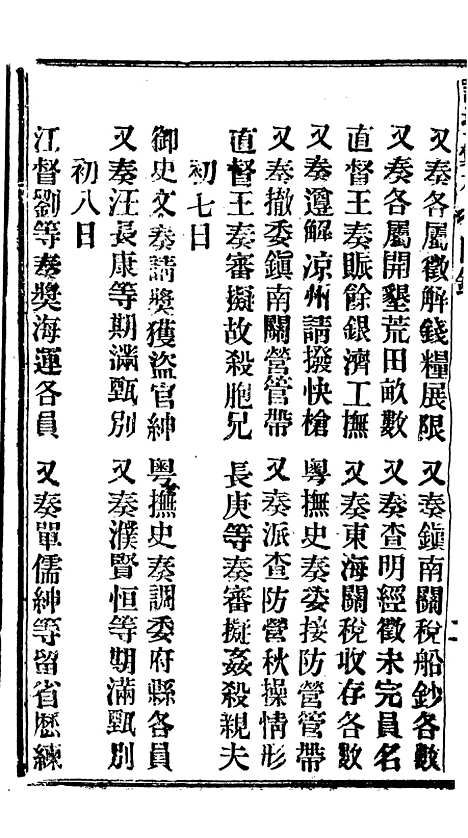 又奏各屬徵解錢糧展限　又奏鎮南關稅船鈔各數
又奏各屬開墾荒田畝數　又奏查明經徵未完員名
直督王奏賑餘銀濟工撫　又奏東海關稅收存各數
又奏遵解凉州請撥快槍　粵撫史奏委接防營管帶
又奏撤委鎮南關營管帶　又奏派查防營秋操情形
直督王奏審擬故殺胞兄　長庚等奏審擬姦殺親夫
初七日
御史文奏請獎獲盜官紳　粵撫史奏調委府縣各員
又奏汪長康等期滿甄別　又奏濮賢恒等期滿甄別
初八日
江督劉等奏獎海運各員　又奏單儒紳等留省歷練